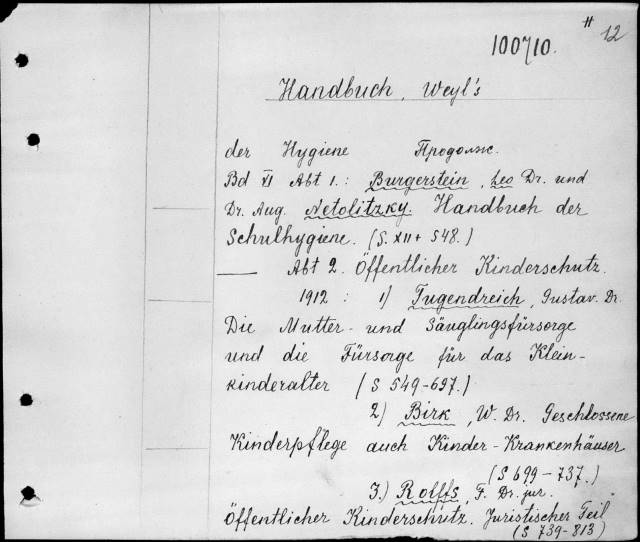 " 12
100710.
Handbuch, Weyl's
der Hygiene Продолж.
Bd XI Abt 1.: Burgerstein, Leo Dr. und
Dr. Aug. Netolitzky. Handbuch der
Schulhygiene. (S. XII + 548.)
— Abt 2. Öffentlicher Kinderschutz.
1912 : 1) Tugendreich, Gustav. Dr.
Die Mutter- und Säuglingsfürsorge
und die Fürsorge für das Klein-
kinderalter (S 549-697.)
2) Birk, W. Dr. Geschlossene
Kinderpflege auch Kinder-Krankenhäuser
(S 699-737.)
3.) Rolffs, F. Dr. jur.
Öffentlicher Kinderschutz. Juristischer Teil.
(S 739-813)